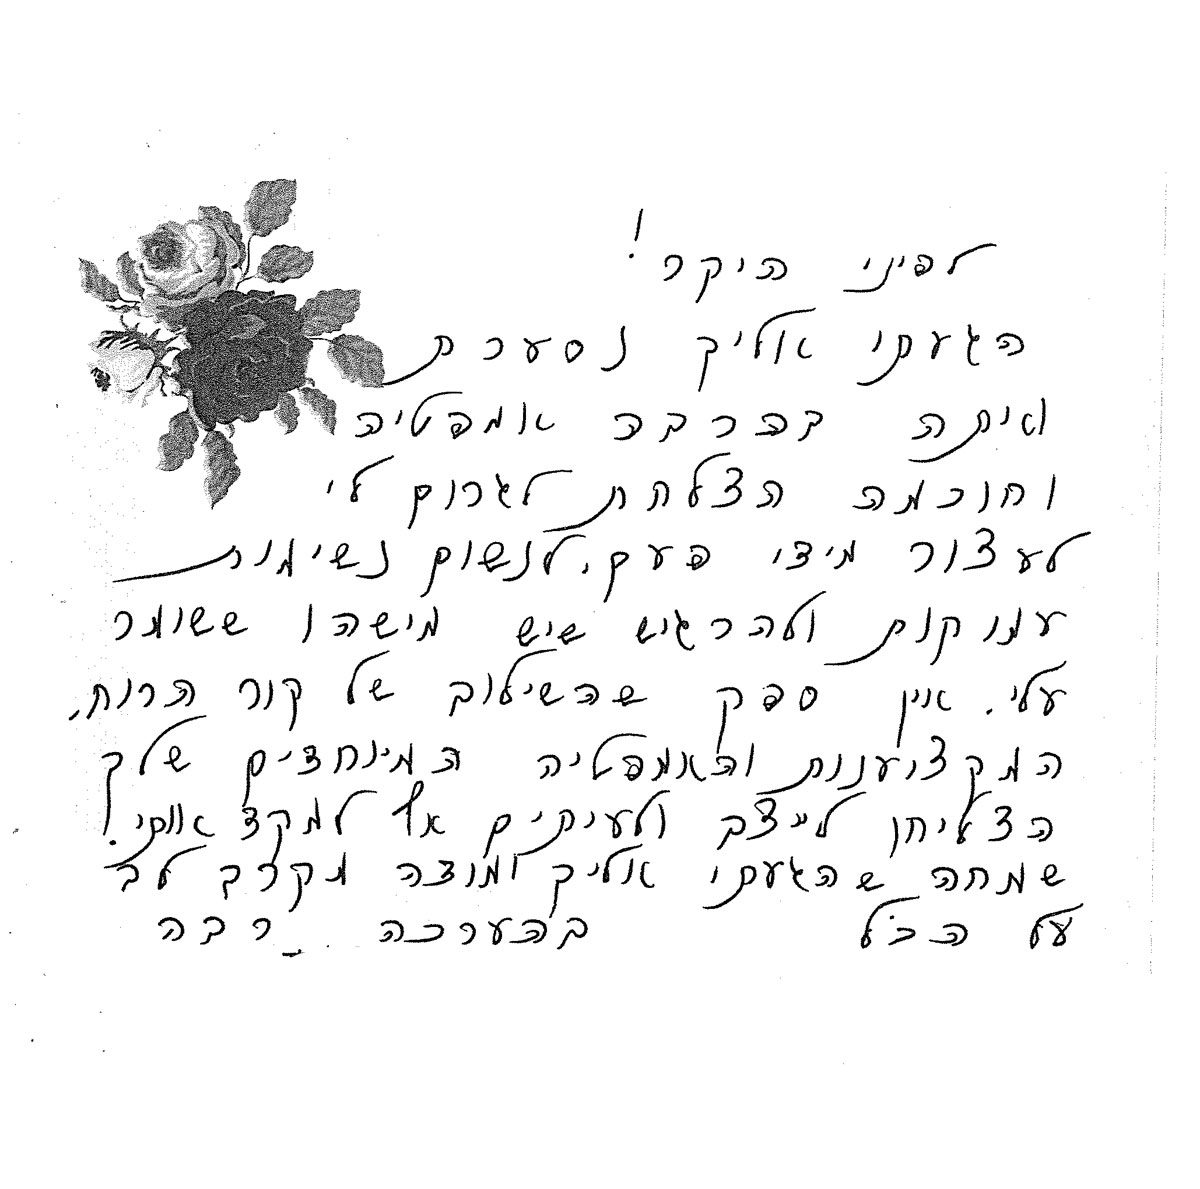 לפיני היקר!
הגעתי אליך נסערת
ואיתה בהרבה אמפטיה
וחוכמה הצלחת לגרום לי
לעצור מידי פעם, לנשום נשימות
עמוקות ולהרגיש שיש מישהו ששומר
עלי. אין ספק שהשילוב של קור הרוח,
המקצוענות והאמפטיה המיוחדים שלך
הצליחו לייצב ולעיתים אף למקד אותי.
שמחה שהגעתי אליך ומודה מקרב לב
על הכל בהערכה רבה